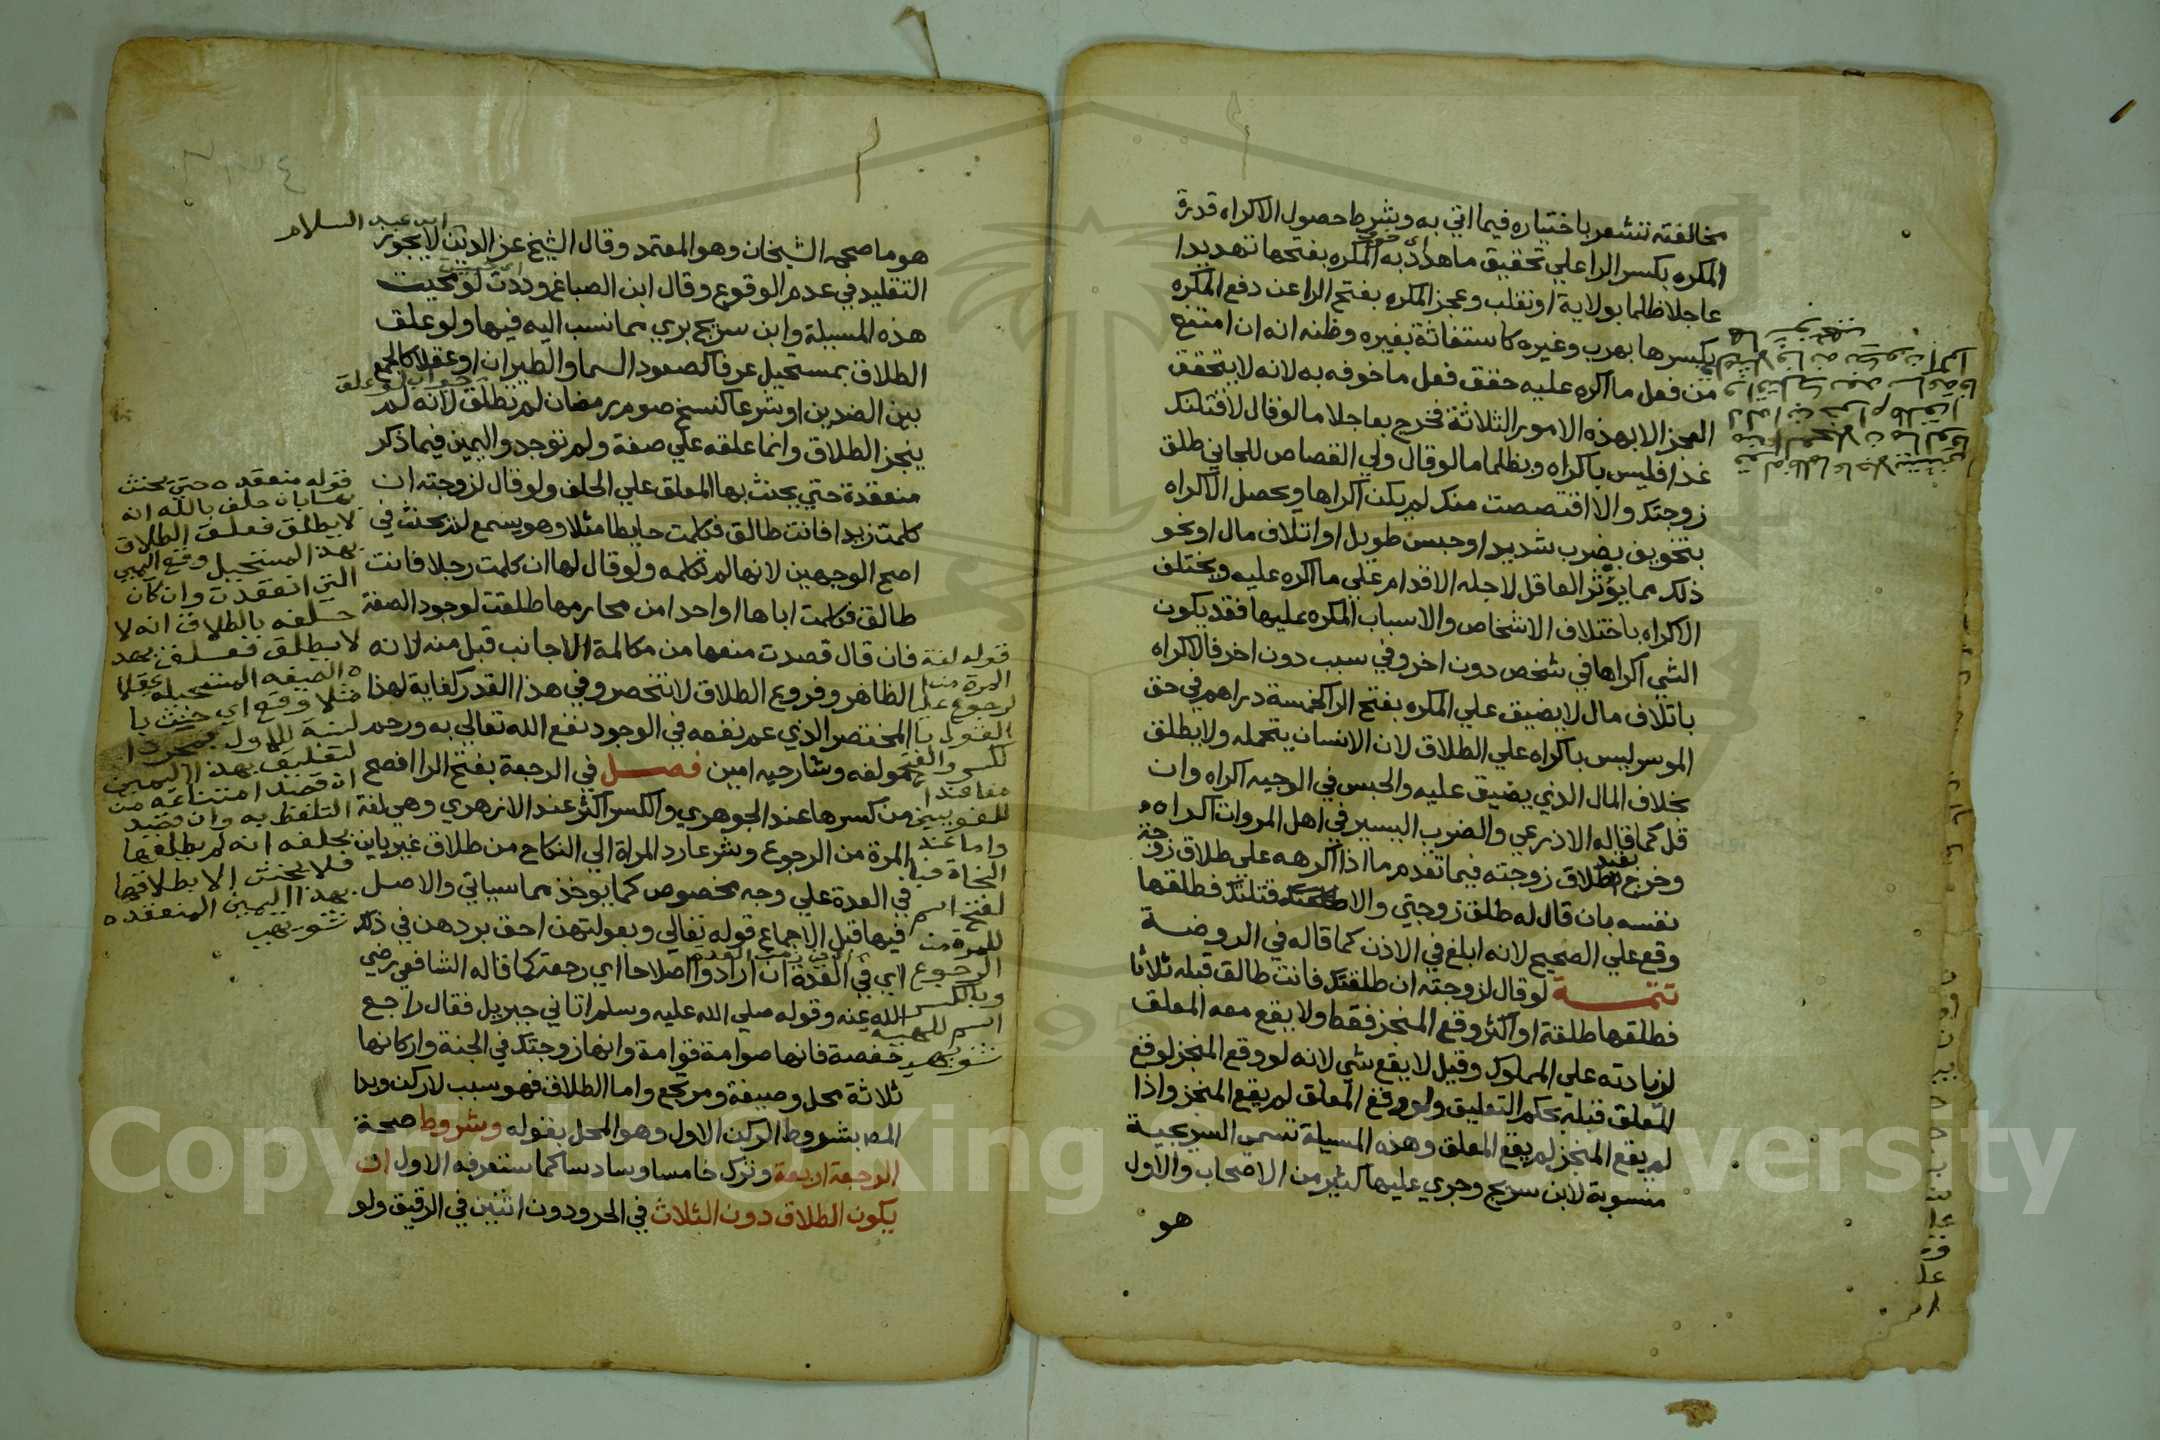 مخالفته تشعر باختياره فيما اتي به وبشرط حصول الاكراه قدرة
المكره بكسر الرا علي تحقيق ما هدد به المكره بفتحها تهديدا
عاجلا ظلما بولاية او تغلب وعجز المكره بفتح الرا عن دفع المكره
بكسرها بهرب وغيره كاستغاثة بغيره وظنه انه ان امتنع
من فعل ما اكره عليه حقق فعل ما خوفه به لانه لا يتحقق
العجز الا بهذه الامور الثلاثة فخرج بعاجلا ما لو قال لاقتلنك
غدا فليس باكراه وبظلما ما لو قال ولي القصاص للجاني طلق
زوجتك والا اقتصصت منك لم يكن اكراها ويحصل الاكراه
بتخويف بضرب شديد او حبس طويل او اتلاف مال او نحو
ذلك مما يوثر العاقل لاجله الاقدام علي ما اكره عليه ويختلف
الاكراه باختلاف الاشخاص والاسباب المكره عليها فقد يكون
الشي اكراها في شخص دون اخر وفي سبب دون اخر فالاكراه
باتلاف مال لا يضيق علي المكره بفتح الرا كخمسة دراهم في حق
الموسر ليس باكراه علي الطلاق لان الانسان يتحمله ولا يطلق
بخلاف المال الذي يضيق عليه والحبس في الوجيه اكراه وان
قل كما قاله الاذرعي والضرب اليسير في اهل المروات اكراه
وخرج بقيد طلاق زوجته فيما تقدم ما اذا اكرهه علي طلاق زوجة
نفسه بان قال له طلق زوجتي والا قتلتك فطلقها
وقع علي الصحيح لانه ابلغ في الاذن كما قاله في الروضة
تتمة لو قال لزوجته ان طلقتك فانت طالق قبله ثلاثا
فطلقها طلقة او اكثر وقع المنجز فقط ولا يقع معه المعلق
لزيادته علي المملوك وقيل لا يقع شي لانه لو وقع المنجز لوقع
المعلق قبله بحكم التعليق ولو وقع المعلق لم يقع المنجز واذا
لم يقع المنجز لم يقع المعلق وهذه المسيلة تسمي السريجية
منسوبة لابن سريج وجري عليها كثير من الاصحاب والاول
هو
ابن عبد السلام
هو ما صححه الشيخان وهو المعتمد وقال الشيخ عز الدين لا يجوز
التقليد في عدم الوقوع وقال ابن الصباغ وددت لو محيت
هذه المسيلة وابن سريج بري مما نسب اليه فيها ولو علق
الطلاق بمستحيل عرفا كصعود السما والطيران او عقلا كالجمع
بين الضدين او شرعا كنسخ صوم رمضان لم تطلق لانه لم
ينجز الطلاق وانما علقه علي صفة ولم توجد واليمين فيما ذكر
منعقدة حتي يحنث بها المعلق علي الحلف ولو قال لزوجته ان
كلمت زيدا فانت طالق فكلمت حايطا مثلا وهو يسمع لم يحنث في
اصح الوجهين لانها لم تكلمه ولو قال لها ان كلمت رجلا فانت
طالق فكلمت اباها او احدا من محارمها طلقت لوجود الصفة
فان قال قصدت منعها من مكالمة الاجانب قبل منه لانه
الظاهر وفروع الطلاق لا تنحصر وفي هذا القدر كفاية لهذا
المختصر الذي عم نفعه في الوجود نفع الله تعالي به ورحم
مولفه وشارحيه امين فصل في الرجعة بفتح الرا افصح
من كسرها عند الجوهري والكسر اكثر عند الازهري وهي لغة
المرة من الرجوع وشرعا رد المراة الي النكاح من طلاق غير باين
في العدة علي وجه مخصوص كما يوخذ مما سياتي والاصل
فيها قبل الاجماع قوله تعالي وبعولتهن احق بردهن في ذلك
اي في العدة ان ارادوا اصلاحا اي رجعة كما قاله الشافعي رضي
الله عنه وقوله صلي الله عليه وسلم اتاني جبريل فقال راجع
حفصة فانها صوامة قوامة وانها زوجتك في الجنة واركانها
ثلاثة محل وصيغة ومرتجع واما الطلاق فهو سبب لا ركن وبدا
المص بشروط الركن الاول وهو المحل بقوله وشروط صحة
الرجعة اربعة وترك خامسا وسادسا كما ستعرفه الاول ان
يكون الطلاق دون الثلاث في الحر ودون اثنين في الرقيق ولو
قوله منعقده حتي يحنث
بها بان حلف بالله انه
لا يطلق فعلق الطلاق
بهذا المستحيل وقع اليمين
التي انعقدت وان كان
حلفه بالطلاق انه لا
لا يطلق فعلق بهذ
ه الصيغه المستحيله عقلا
مثلا وقع اي حنث با
لنسبة للاول بمجرد ا
لتعليق بهذا اليمين
ان قصد امتناعه من
التلفظ به وان قصد
بحلفه انه لم يطلقها
فلا يحنث الا بطلاقها
بهذا اليمين المنعقده
شوبهي
قوله لغة
المرة من ا
لرجوع علي
القول با
لكسر والفتح
للغويين
واما عند
النحاة فبا
لفتح اسم
للمرة من
الرجوع
وبالكسر
اسم للهيئة
شوبهي
Copyright © King Saud University